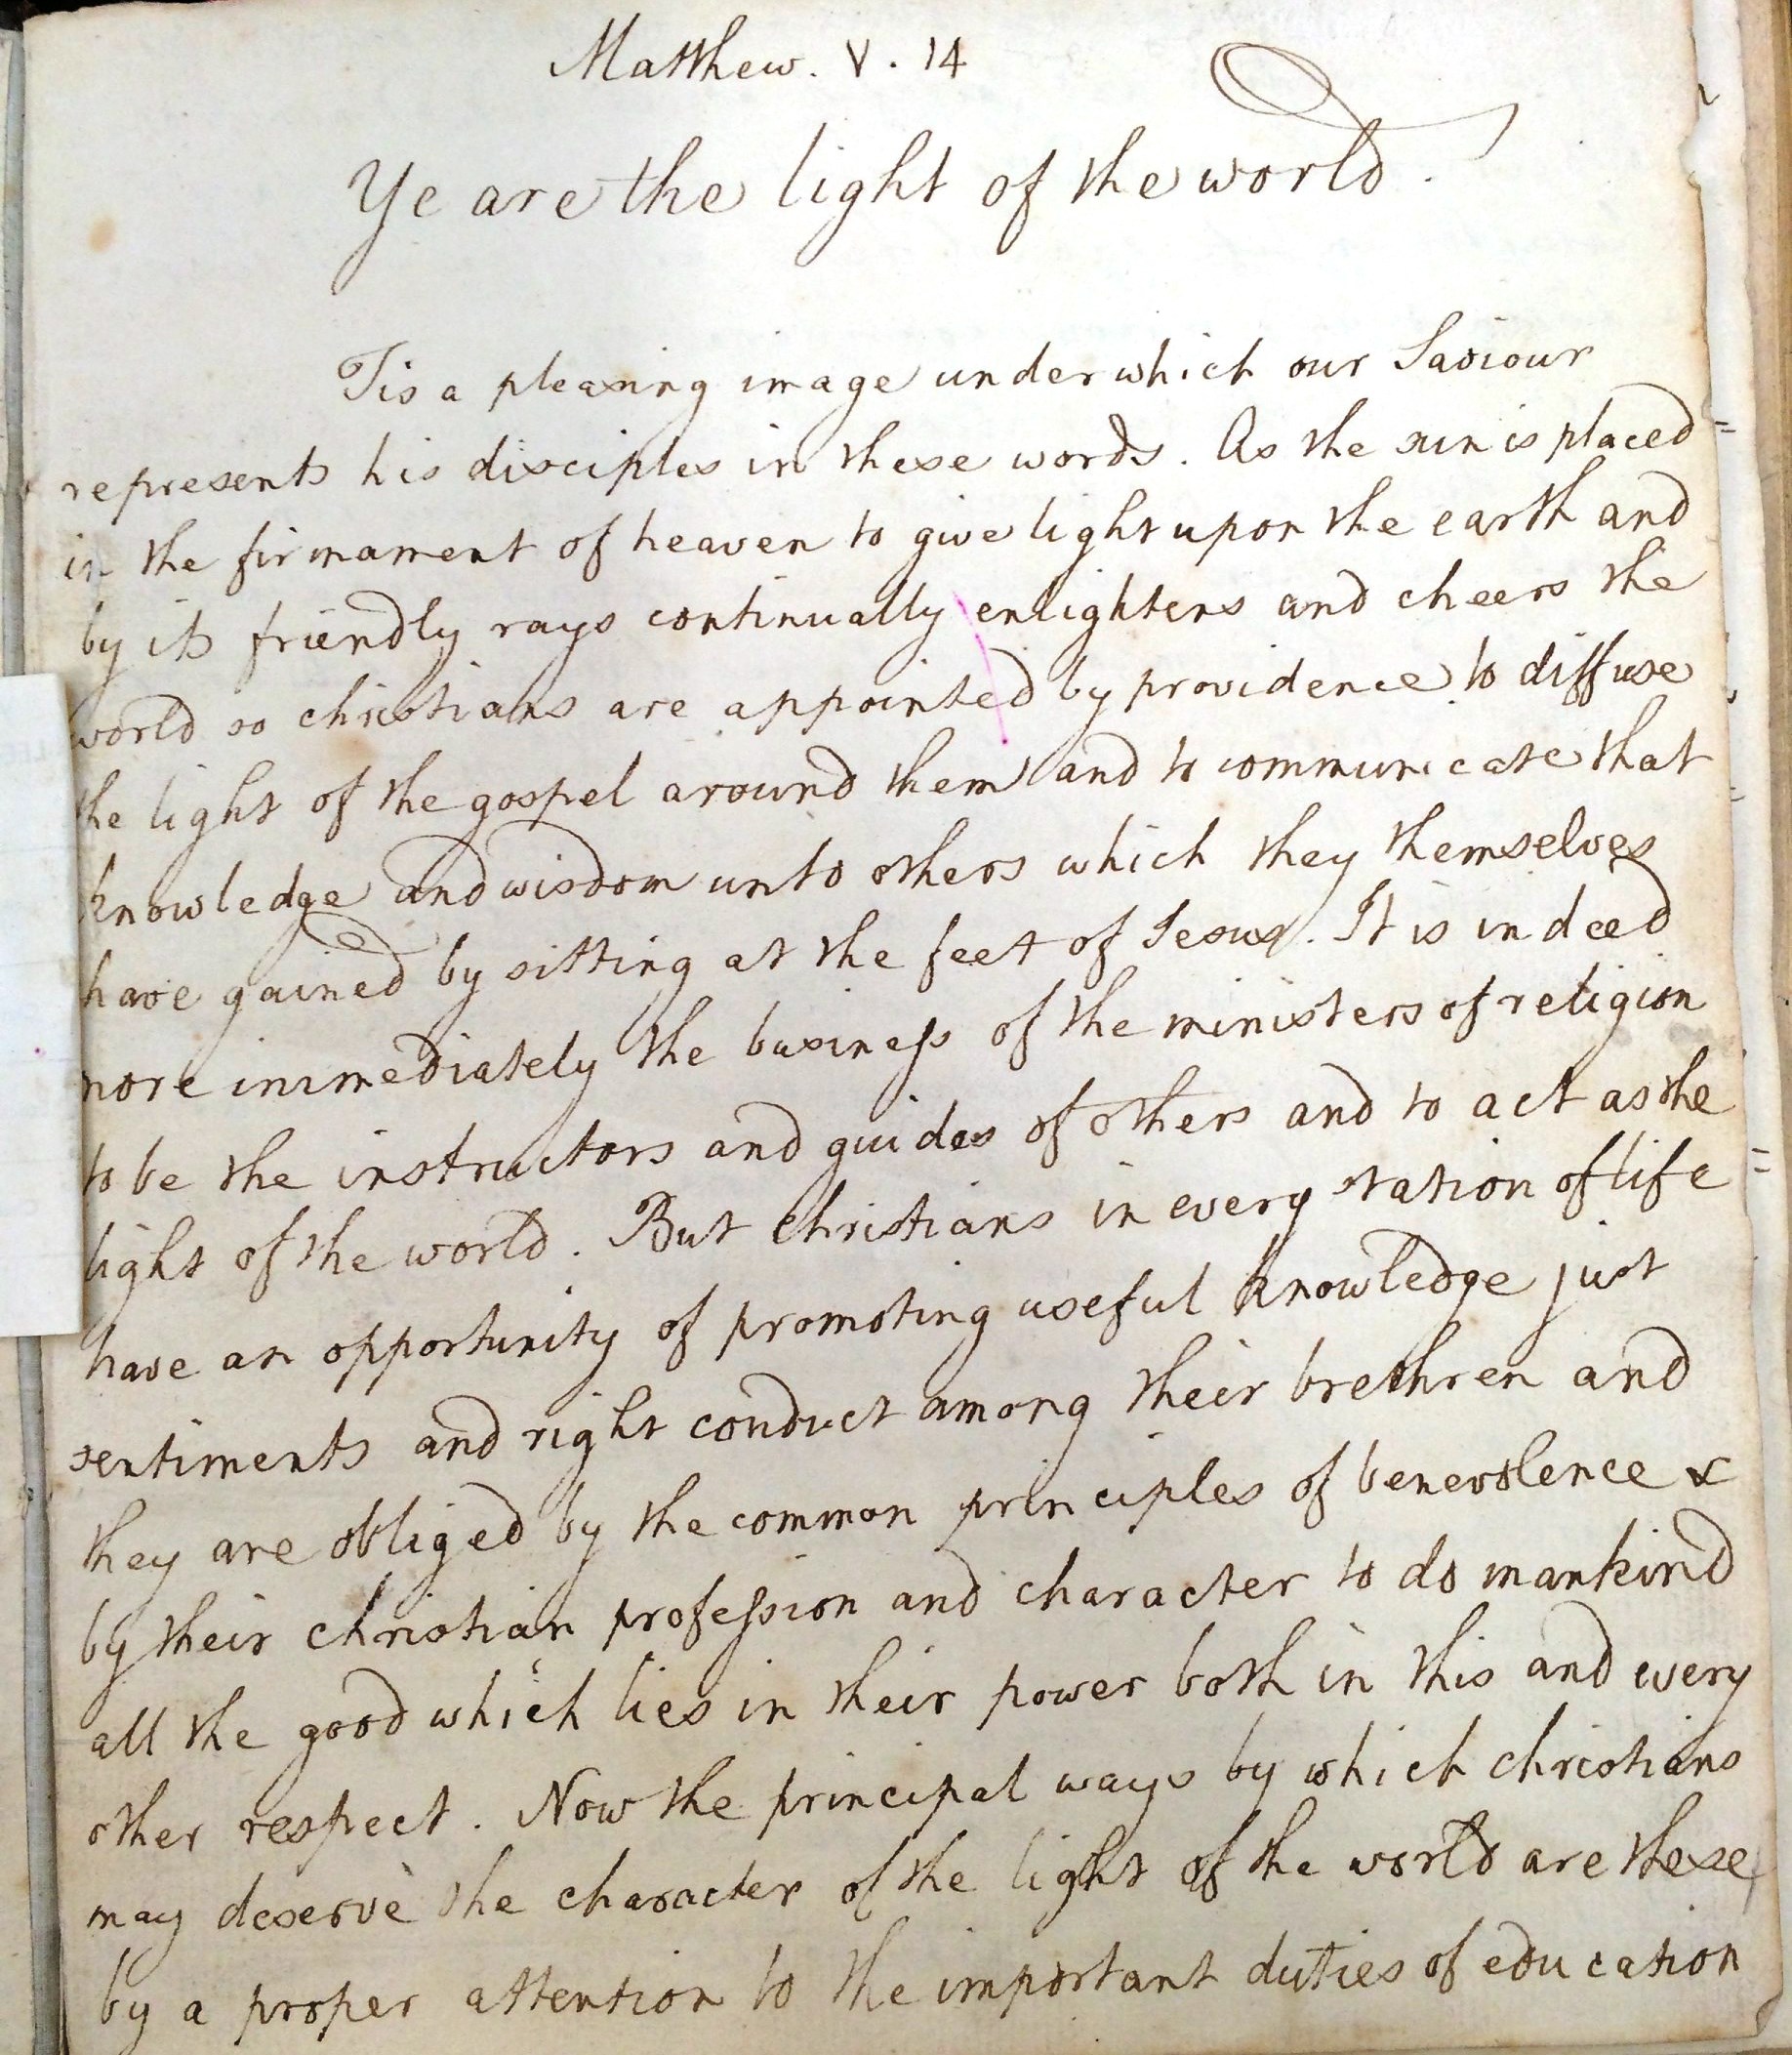 Matthew. V. 14
Ye are the light of the world.
Tis a pleasing image under which our Saviour
represents his disciples in these words. As the sun is placed
in the firmament of heaven to give light upon the earth and
by its friendly rays continually enlightens and cheers the
world so christians are appointed by providence to diffuse
the light of the gospel around them and to communicate that
knowledge and wisdom unto others which they themselves
have gained by sitting at the feet of Jesus. It is indeed
more immediately the business of the ministers of religion
to be the instructors and guides of others and to act as the
light of the world. But christians in every station of life
have an opportunity of promoting useful knowledge just
sentiments and right conduct among their brethren and
they are obliged by the common principles of benevolence &
by their christian profession and character to do mankind
all the good which lies in their power both in this and every
other respect. Now the principal ways by which christians
may deserve the character of the light of the world are these
by a proper attention to the important duties of education